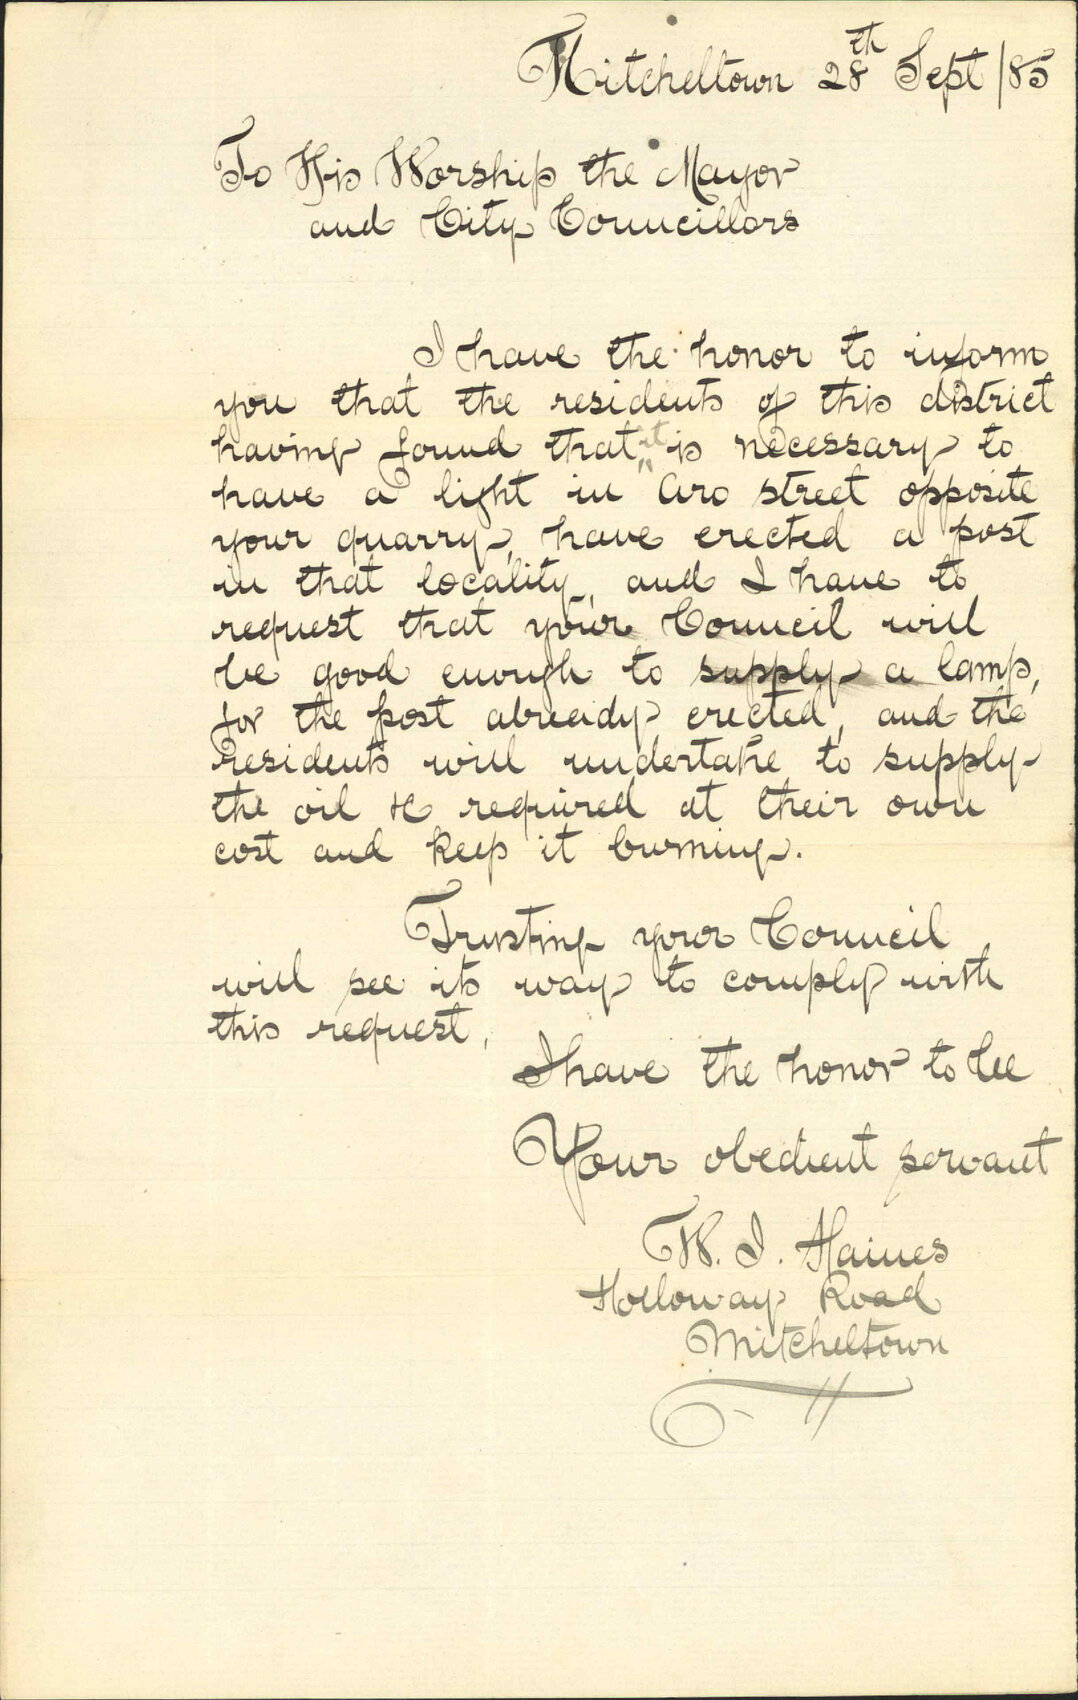 Mitcheltown 28th Sept /85
To His Worship the Mayor
and City Councillors
I have the honor to inform
you that the residents of this district
having found that it is necessary to
have a light in Aro street opposite
your quarry, have erected a post
in that locality, and I have to
request that your Council will
be good enough to supply a lamp,
for the post already erected, and the
residents will undertake to supply
the oil &c required at their own
cost and keep it burning.
Trusting your Council
will see its way to comply with
this request,
I have the honor to be
Your obedient servant
W. J. Haines
Holloway Road
Mitcheltown